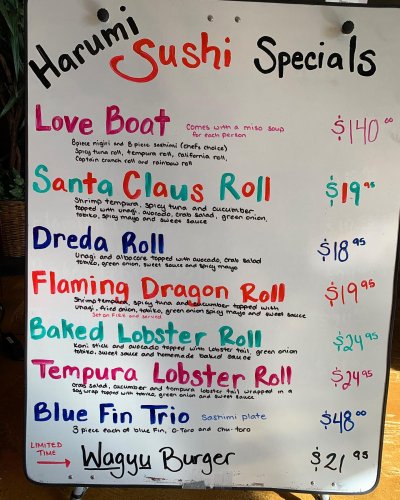 Harumi Sushi Specials
Love Boat Comes with a miso soup $140.00
for each person
8 piece nigiri and 8 piece sashimi (chef's choice)
Spicy tuna roll, tempura roll, california roll,
Captain crunch roll and rainbow roll
Santa Claus Roll $19.95
Shrimp tempura, spicy tuna and cucumber
topped with unagi, avocado, crab salad, green onion,
tobiko, spicy mayo and sweet sauce
Dreda Roll $18.95
Unagi and albacore topped with avocado, crab salad
tobiko, green onion, sweet sauce and spicy mayo
Flaming Dragon Roll $19.95
Shrimp tempura, spicy tuna and cucumber topped with
unagi, fried onion, tobiko, green onion spicy mayo and sweet sauce
Set on fire and served
Baked Lobster Roll $24.95
Kani stick and avocado topped with lobster tail, green onion
tobiko, sweet sauce and homemade baked sauce
Tempura Lobster Roll $24.95
Crab salad, cucumber and tempura lobster tail wrapped in a
soy wrap topped with tobiko, green onion and sweet sauce
Blue Fin Trio Sashimi plate $48.00
3 piece each of blue fin, o-toro and chu-toro
LIMITED
TIME → Wagyu Burger $21.95